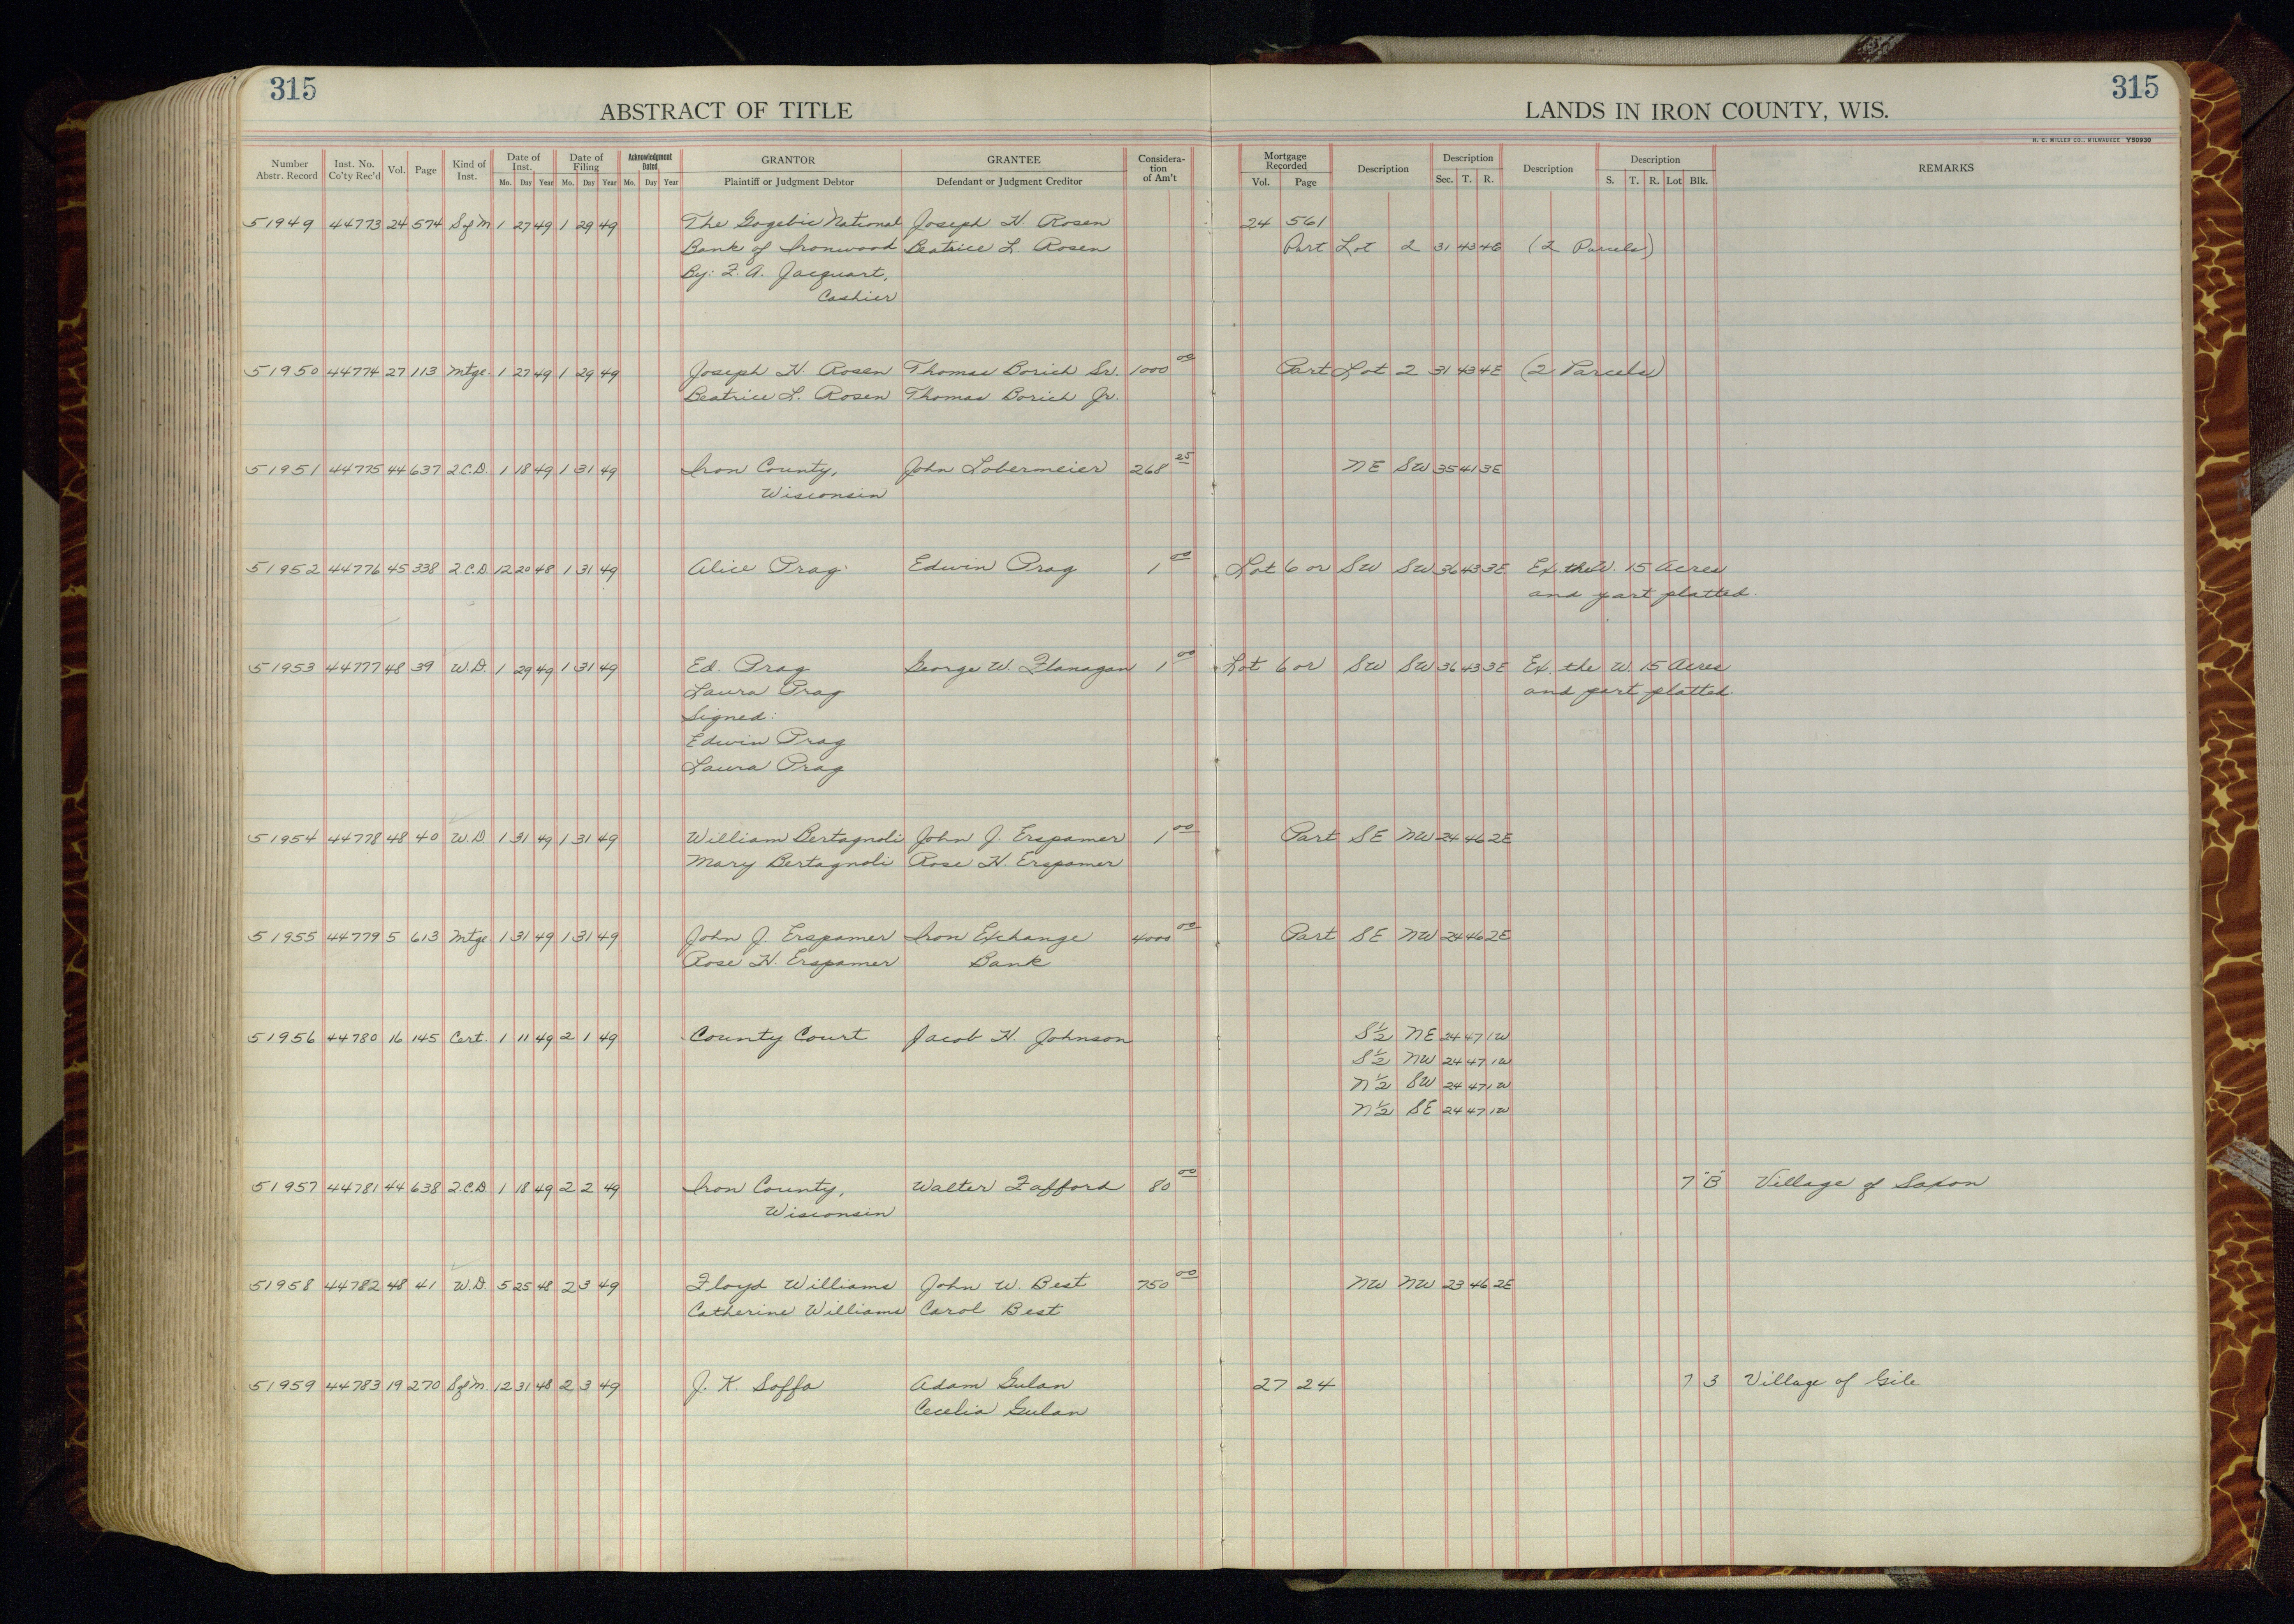 315 315
ABSTRACT OF TITLE LANDS IN IRON COUNTY, WIS.
H. C. MILLER CO., MILWAUKEE Y50930
Number Abstr. Record Inst. No. Co'ty Rec'd Vol. Page Kind of Inst. Date of Inst. Mo. Day Year Date of Filing Mo. Day Year Acknowledgment Dated Mo. Day Year GRANTOR Plaintiff or Judgment Debtor GRANTEE Defendant or Judgment Creditor Considera-tion of Am't Mortgage Recorded Vol. Page Description Description Sec. T. R. Description Description S. T. R. Lot Blk. REMARKS
51949 44773 24 574 S of M 1 27 49 1 29 49 The Gogebic National Joseph H. Rosen 24 561
Bank of Ironwood Beatrice L. Rosen Part Lot 2 31 43 4E (2 Parcels)
By: F. A. Jacquart,
Cashier
51950 44774 27 113 Mtge. 1 27 49 1 29 49 Joseph H Rosen Thomas Borich Sr. 1000 00 Part Lot 2 31 43 4E (2 Parcels)
Beatrice L. Rosen Thomas Borich Jr.
51951 44775 44 637 2.C.D. 1 18 49 1 31 49 Iron County, John Lobermeier 268 25 NE SW 35 41 3E
Wisconsin
51952 44776 45 338 2.C.D. 12 20 48 1 31 49 Alice Prag Edwin Prag 1 00 Lot 6 or SW SW 36 43 3E Ex. the W. 15 Acres
and part platted.
51953 44777 48 39 W.D. 1 29 49 1 31 49 Ed. Prag George W. Flanagan 1 00 Lot 6 or SW SW 36 43 3E Ex. the W. 15 Acres
Laura Prag and part platted.
Signed:
Edwin Prag
Laura Prag
51954 44778 48 40 W.D. 1 31 49 1 31 49 William Bertagnoli John J. Erspamer 1 00 Part SE NW 24 46 2E
Mary Bertagnoli Rose H. Erspamer
51955 44779 5 613 Mtge 1 31 49 1 31 49 John J Erspamer Iron Exchange 4000 00 Part SE NW 24 46 2E
Rose H. Erspamer Bank
51956 44780 16 145 Cert. 1 11 49 2 1 49 County Court Jacob H. Johnson S½ NE 24 47 1W
S½ NW 24 47 1W
N½ SW 24 47 1W
N½ SE 24 47 1W
51957 44781 44 638 2.C.D. 1 18 49 2 2 49 Iron County, Walter Fafford 80 00 7 "B" Village of Saxon
Wisconsin
51958 44782 48 41 W.D. 5 25 48 2 3 49 Floyd Williams John W. Best 750 00 NW NW 23 46 2E
Catherine Williams Carol Best
51959 44783 19 270 S of M. 12 31 48 2 3 49 J. K. Soffa Adam Gulan 27 24 7 3 Village of Gile
Cecelia Gulan